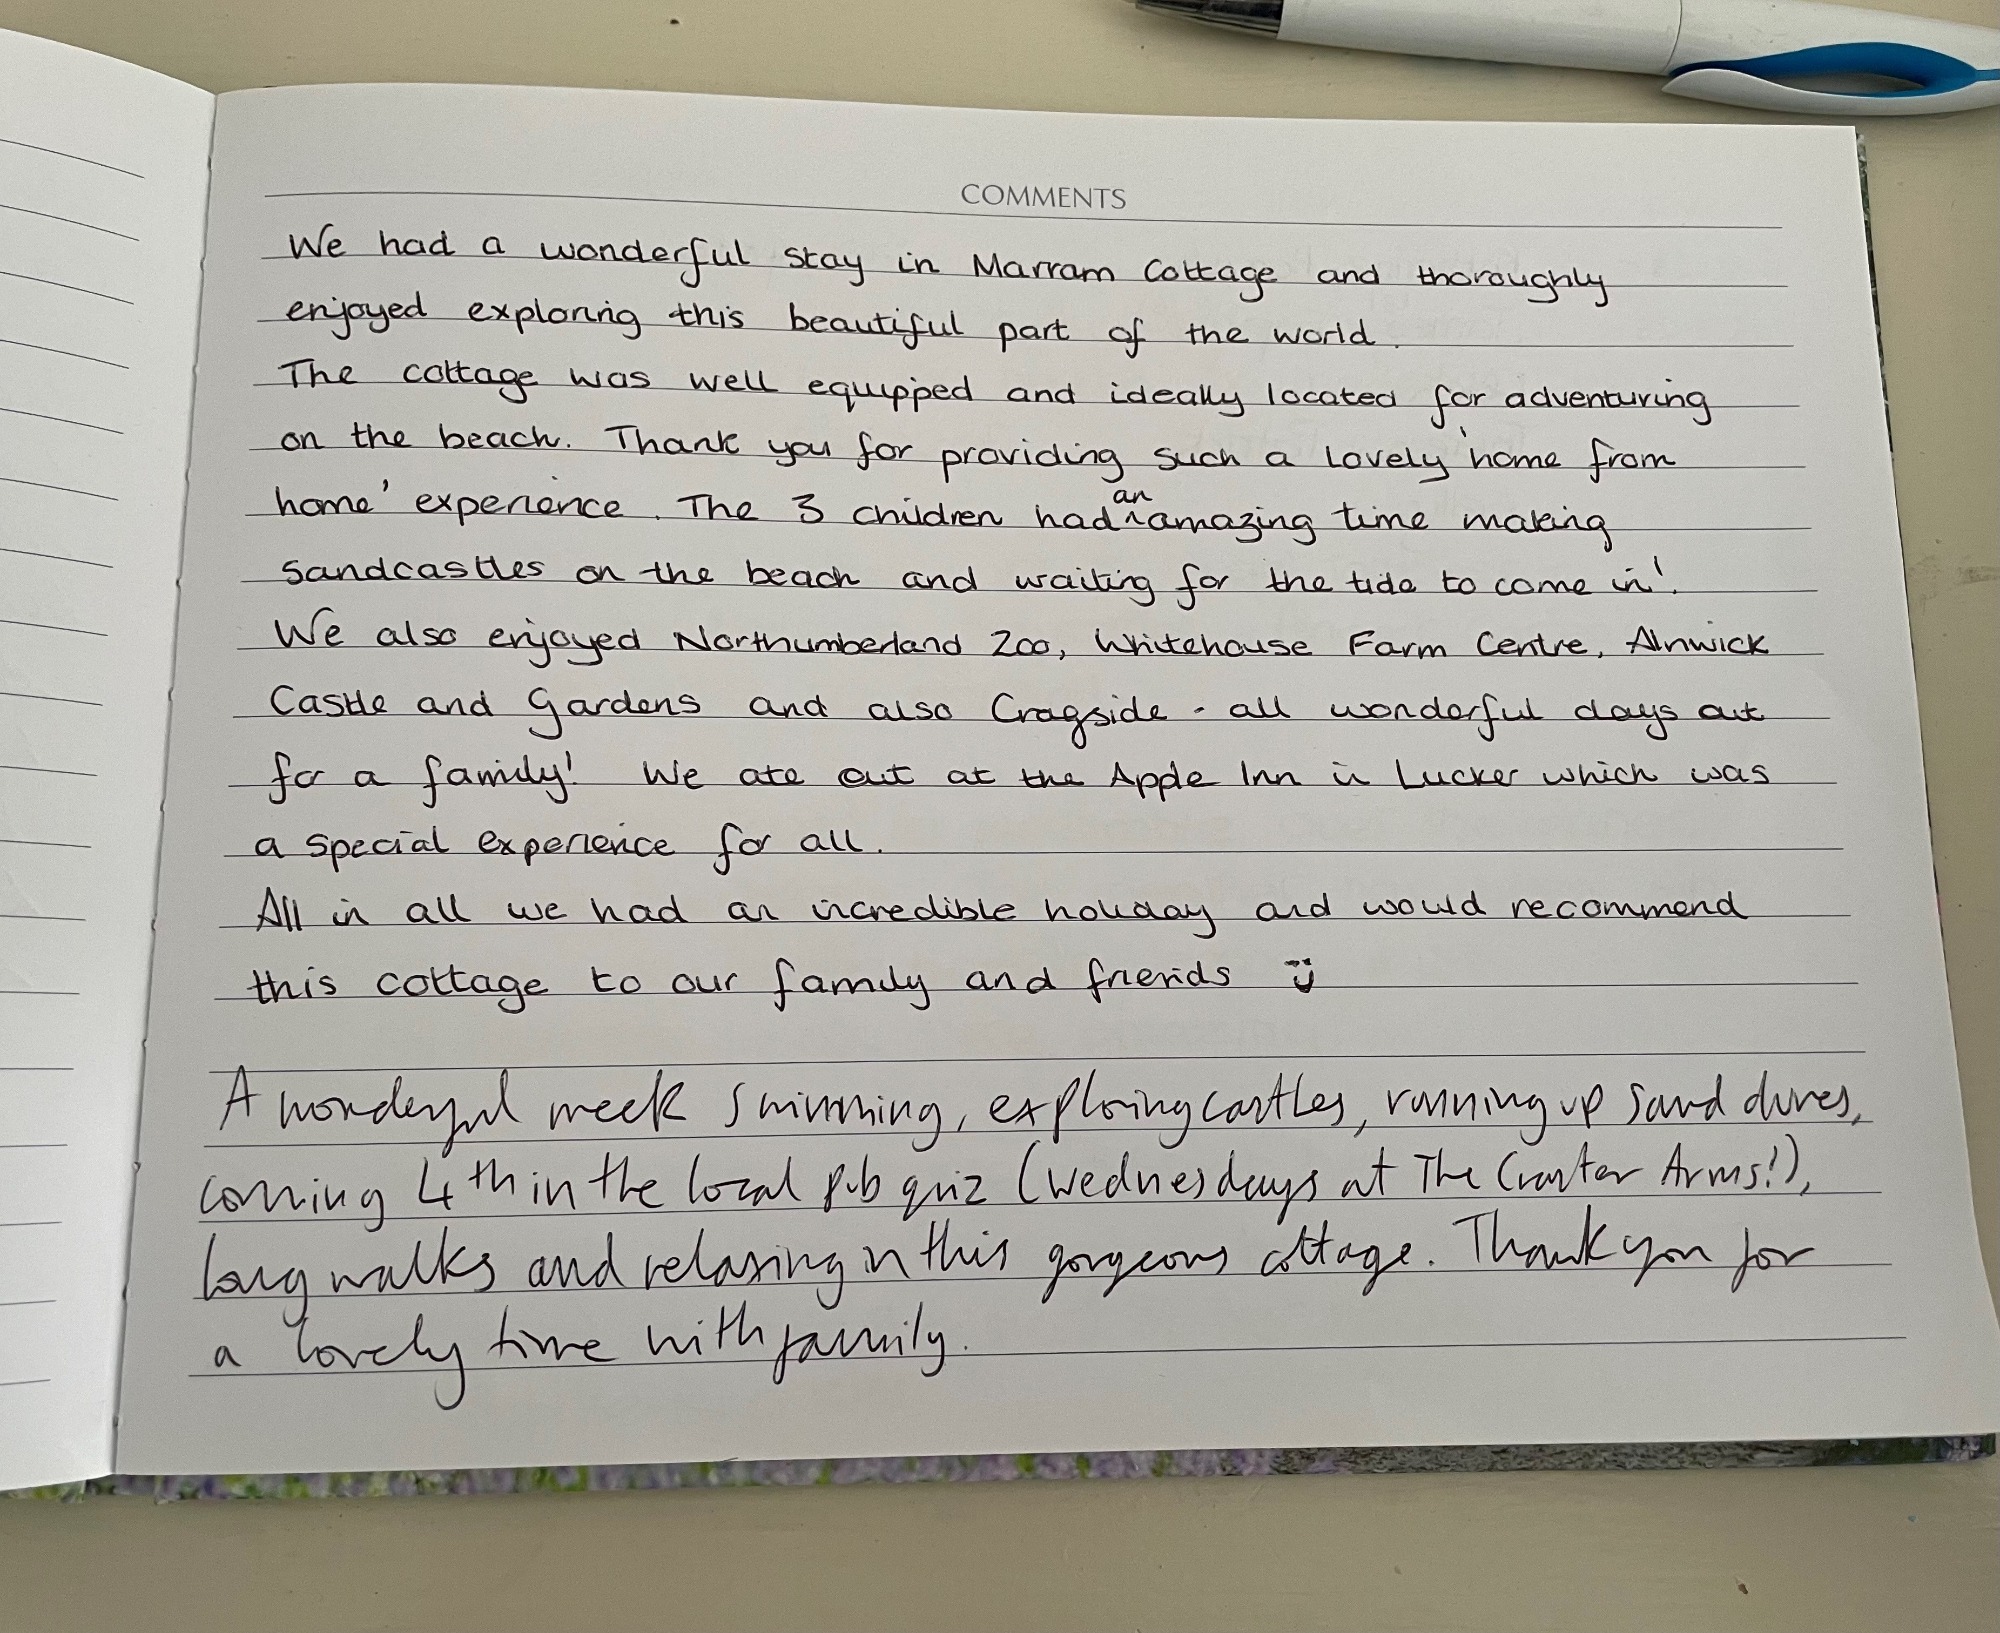 COMMENTS
We had a wonderful stay in Marram Cottage and thoroughly
enjoyed exploring this beautiful part of the world.
The cottage was well equipped and ideally located for adventuring
on the beach. Thank you for providing such a lovely 'home from
home' experience. The 3 children had an amazing time making
sandcastles on the beach and waiting for the tide to come in!
We also enjoyed Northumberland Zoo, Whitehouse Farm Centre, Alnwick
Castle and Gardens and also Cragside - all wonderful days out
for a family! We ate out at the Apple Inn in Lucker which was
a special experience for all.
All in all we had an incredible holiday and would recommend
this cottage to our family and friends
A wonderful week swimming, exploring castles, running up sand dunes,
coming 4th in the local pub quiz (Wednesdays at The Craster Arms!),
long walks and relaxing in this gorgeous cottage. Thank you for
a lovely time with family.